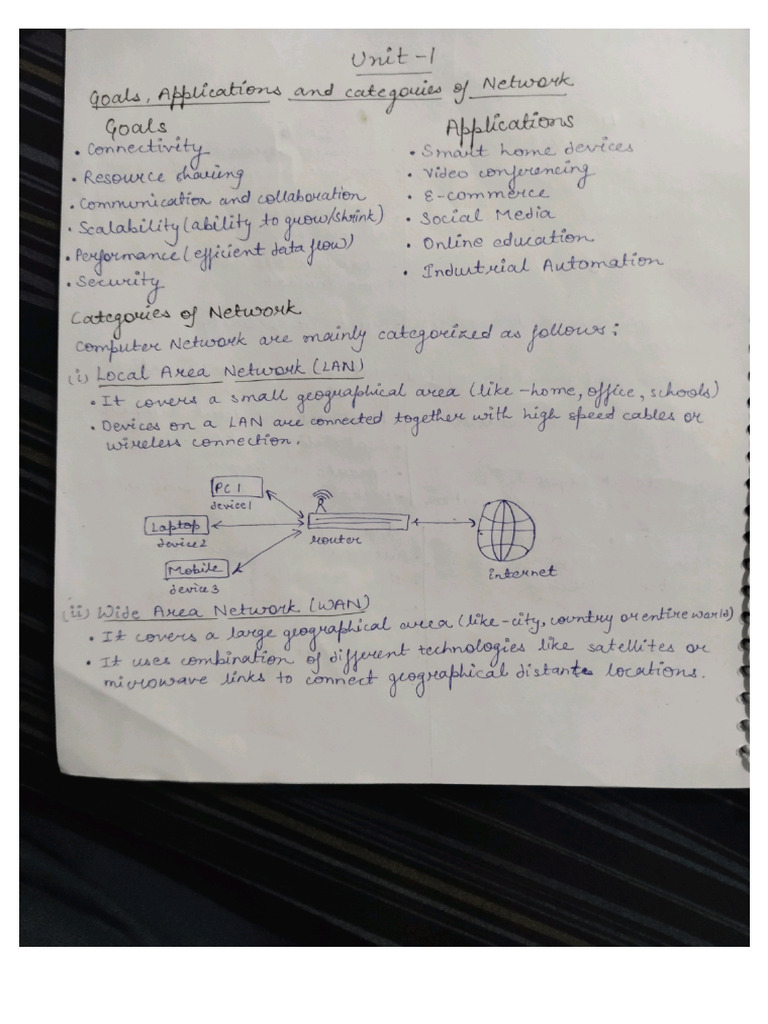 Unit - 1
Goals, Applications and categories of Network
Goals
• Connectivity
• Resource sharing
• Communication and collaboration
• Scalability (ability to grow/shrink)
• Performance (efficient data flow)
• Security
Applications
• Smart home devices
• Video conferencing
• E-commerce
• Social Media
• Online education
• Industrial Automation
Categories of Network
Computer Network are mainly categorized as follows:
(i) Local Area Network (LAN)
• It covers a small geographical area (like - home, office, schools)
• Devices on a LAN are connected together with high speed cables or
wireless connection.
PC 1
device 1
Laptop
device 2
Mobile
device 3
router
internet
(ii) Wide Area Network (WAN)
• It covers a large geographical area (like - city, country or entire world)
• It uses combination of different technologies like satellites or
microwave links to connect geographical distant locations.